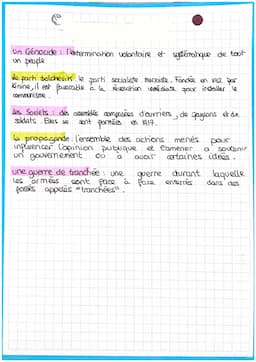 Un Génocide : l'extermination volontaire et systématique de tout
un peuple
Le parti bolchevik : le parti socialiste marxiste. Fondée en 1912 par
Lénine, il est favorable à la révolution immédiate pour installer le
communisme.
Les Soviets : des assemblés composées d'ouvriers, de paysans et de
soldats. Elles se sont formées en 1917.
La propagande : l'ensemble des actions menés pour
influencer l'opinion publique et l'amener à soutenir
un gouvernement ou à avoir certaines idées.
une guerre de tranchée : une guerre durant laquelle
les armées sont face à face enterrés dans des
fossés appelés "tranchées".